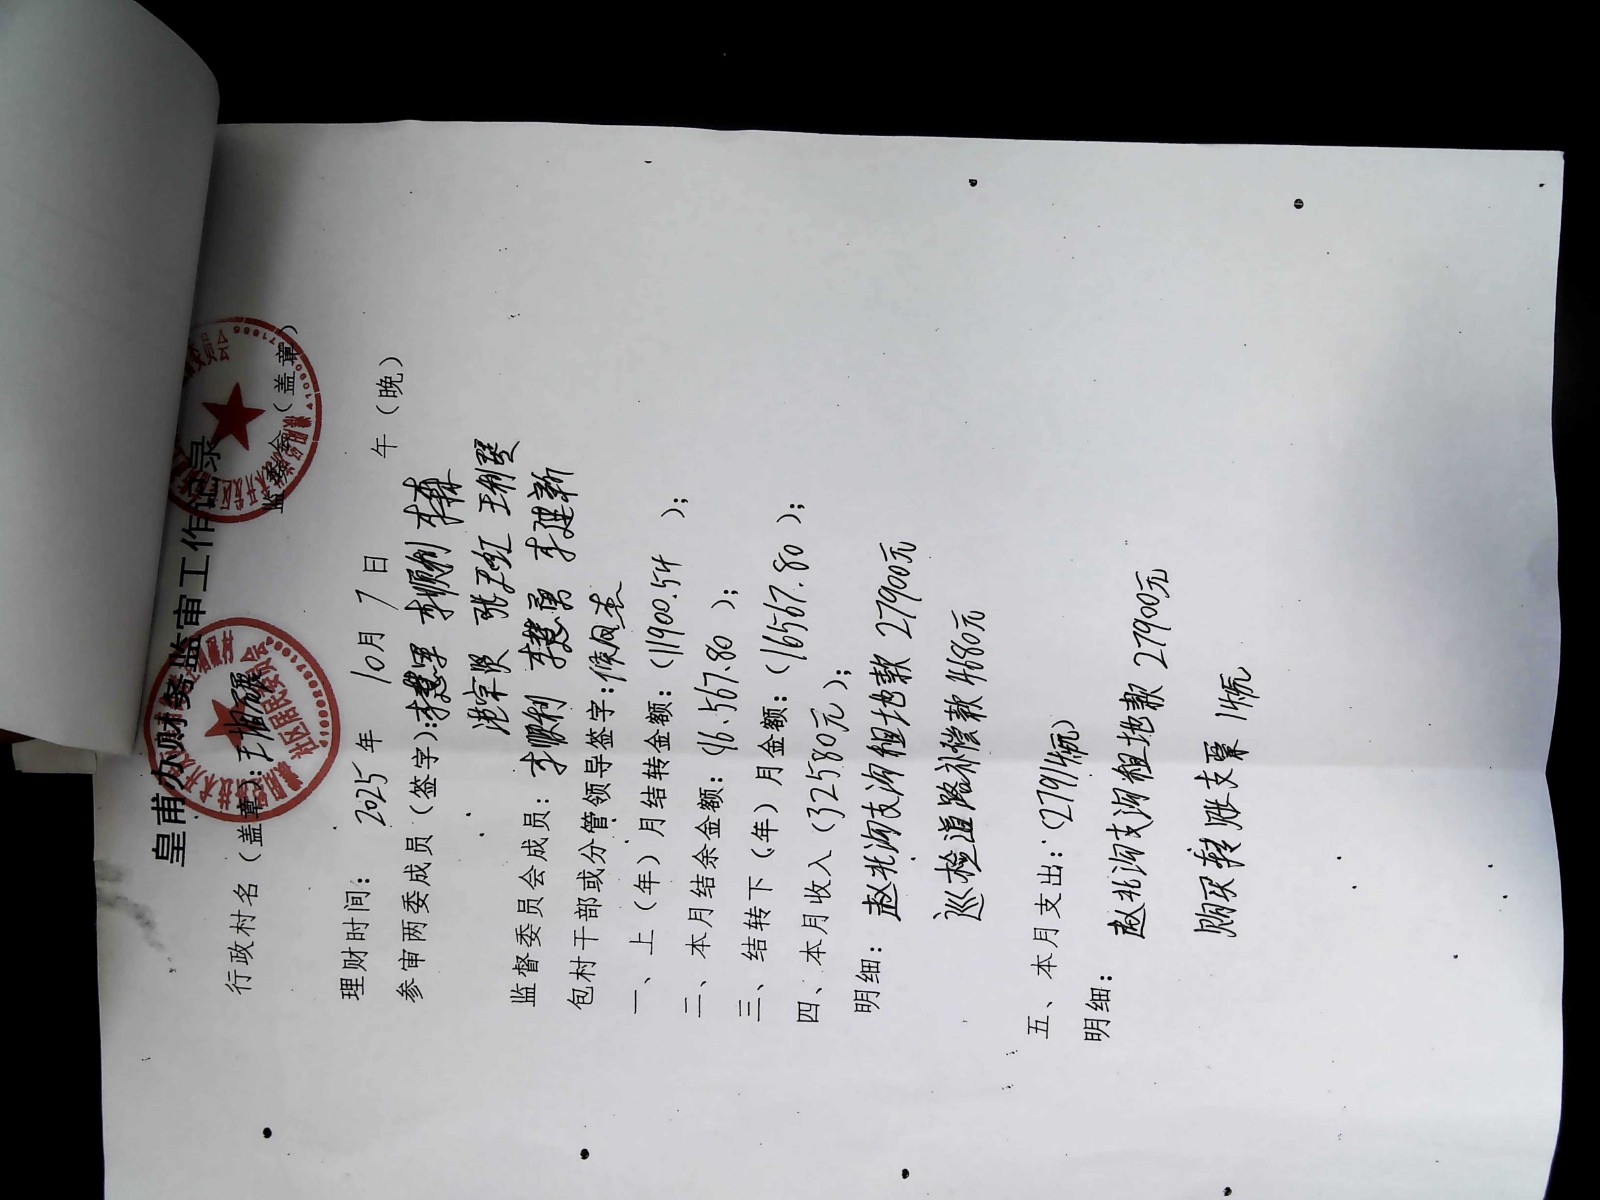 皇甫办财务监审工作记录
行政村名（盖章）： 监委会（盖章）
理财时间： 2025年 10月 7日 午（晚）
参审两委成员（签字）：李慧军 李顺利 李森
张孟红 王利贤
监督委员会成员：李顺利 李慧勇 李建新
包村干部或分管领导签字：侯俊杰
一、上（年）月结转金额：（11900.54 ）；
二、本月结余金额：（16567.80 ）；
三、结转下（年）月金额：（16567.80 ）；
四、本月收入（32580元）；
明细：赵北沟支沟租地款 27900元
巡检道路补偿款 4680元
五、本月支出：（27914元）
明细：
赵北沟支沟租地款 27900元
购买转账支票 14元